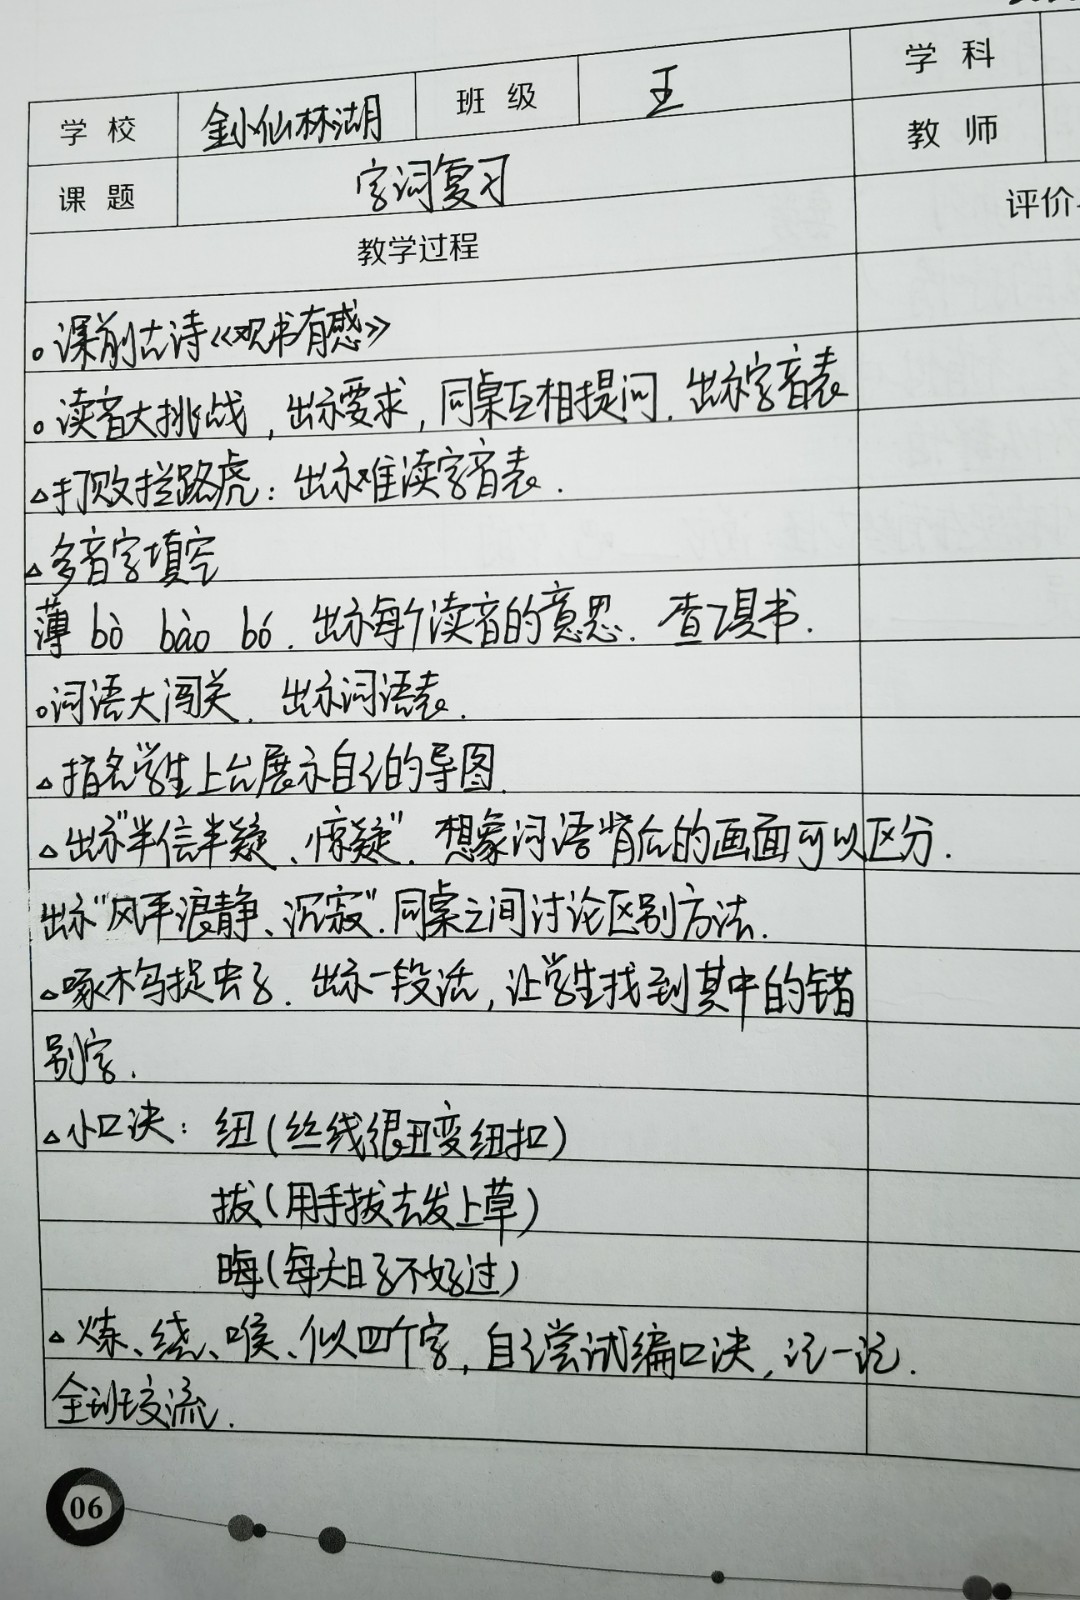 学校 金小仙林湖 班级 王 学科
教师
课题 字词复习
教学过程 评价
。课前古诗《观书有感》
。读音大挑战，出示要求，同桌互相提问．出示字音表
△打败拦路虎：出示难读字音表．
△多音字填空
薄 bò báo bó．出示每个读音的意思．查工具书．
。词语大闯关．出示词语表．
△指名学生上台展示自己的导图．
△出示"半信半疑、惊疑"．想象词语背后的画面可以区分．
出示"风平浪静、沉寂"．同桌之间讨论区别方法．
△啄木鸟捉虫子．出示一段话，让学生找到其中的错
别字．
△小口决：纽(丝线很丑变纽扣)
拔(用手拔去发上草)
晦(每天日子不好过)
△炼、绕、喉、似四个字，自己尝试编口决，记一记．
全班交流．
06